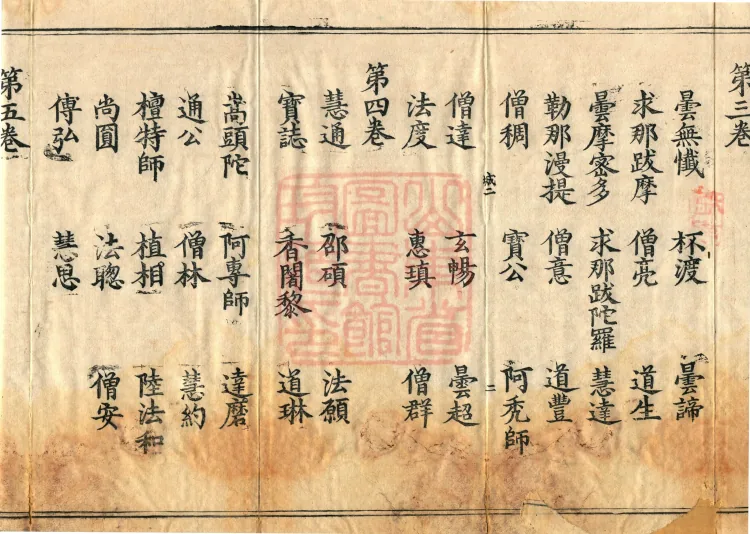 第三卷
曇無懺　杯渡　曇諦
求那跋摩　僧亮　道生
曇摩密多　求那跋陀羅　慧達
勒那漫提　僧意　道豐
僧稠　寶公　阿禿師
城二　二
僧達　玄暢　曇超
法度　惠瑱　僧群
第四卷
慧通　邵碩　法願
寶誌　香闍黎　道琳
嵩頭陀　阿專師　達磨
通公　僧林　慧約
檀特師　植相　陸法和
尚圓　法聰　僧安
傅弘　慧思
第五卷